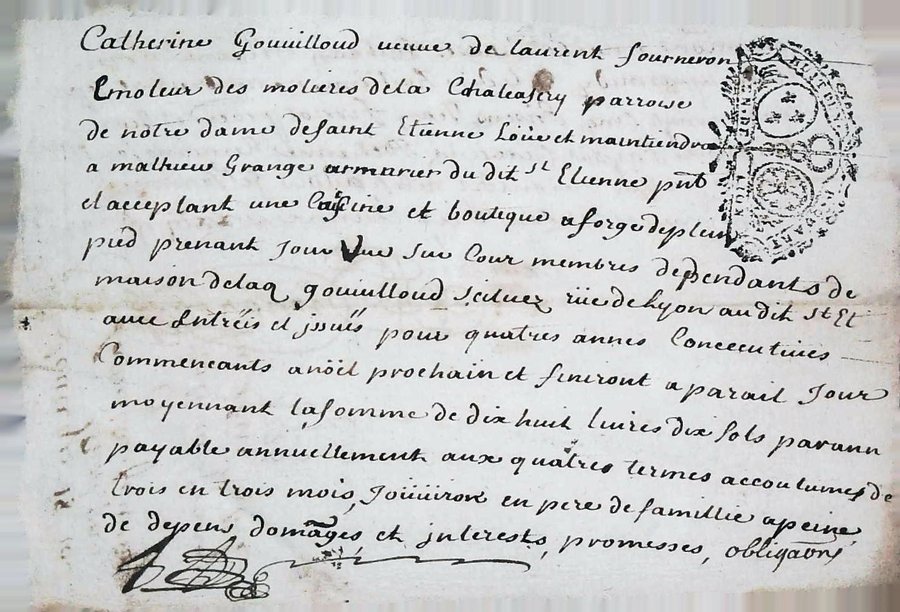 Catherine Gouuilloud ueuue de laurent fourneron
Emoleur des molieres dela Chaleassery parroise
de notre dame desaint Etienne Loüe et maintiendra
a mathieu Grange armurier du dit st Etienne pnt
et acceptant une Cuisine et boutique aforge deplein
pied prenant Jour Vue sur Cour membres dependants de
maison delaq gouuilloud scituez rüe de Lyon audit st Et
auec Entreés et jssuës pour quatres annes Concecutiues
Commencants anoël prochain et finiront a parail Jour
moyennant lasomme de dix huit liures dix sols par ann
payable annuellement aux quatres termes accoutumés de
trois en trois mois, Joüiron en pere de famillie apeine
de depens domages, et jnterests, promesses, obligaons